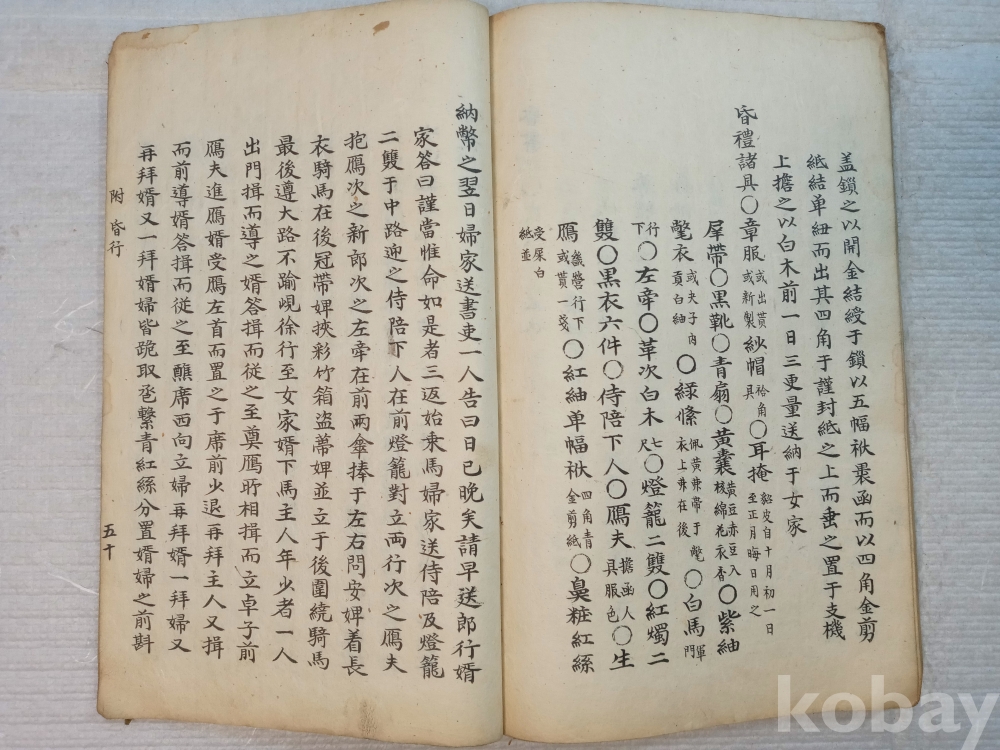 盖鎖之以開金結綬于鎖以五幅袱裹函而以四角金剪
紙結单紐而出其四角于謹封紙之上而垂之置于支機
上擔之以白木前一日三更量送納于女家
昏禮諸具〇章服或出貰或新製紗帽袷角具〇耳掩貂皮自十月初一日至正月晦日用之
犀帶〇黒靴〇青扇〇黄囊黄豆赤豆入核綿花衣香〇紫紬
氅衣或夫子內貢白紬〇緑絛佩黄兼帶于氅衣上垂在後〇白馬軍門
行下〇左牽〇草次白木七尺〇燈籠二雙〇紅燭二
雙〇黒衣六件〇侍陪下人〇鴈夫擔函人具服色〇生
鴈義營行下或貰一箋〇紅紬单幅袱四角青金剪紙〇鼻粧紅絲
受屎白紙並
納幣之翌日婦家送書吏一人告曰日已晚矣請早送郎行婿
家答曰謹當惟命如是者三返始乗馬婦家送侍陪及燈籠
二雙于中路迎之侍陪下人在前燈籠對立両行次之鴈夫
抱鴈次之新郎次之左牽在前兩傘捧于左右問安婢着長
衣騎馬在後冠帶婢挾彩竹箱盗蒂婢並立于後圍繞騎馬
最後遵大路不踰峴徐行至女家婿下馬主人年少者一人
出門揖而導之婿答揖而従之至奠鴈所相揖而立卓子前
鴈夫進鴈婿受鴈左首而置之于席前少退再拜主人又揖
而前導婿答揖而従之至醮席西向立婦再拜婿一拜婦又
再拜婿又一拜婿婦皆跪取卺繫青紅絲分置婿婦之前斟
附 昏行
五十
kobay